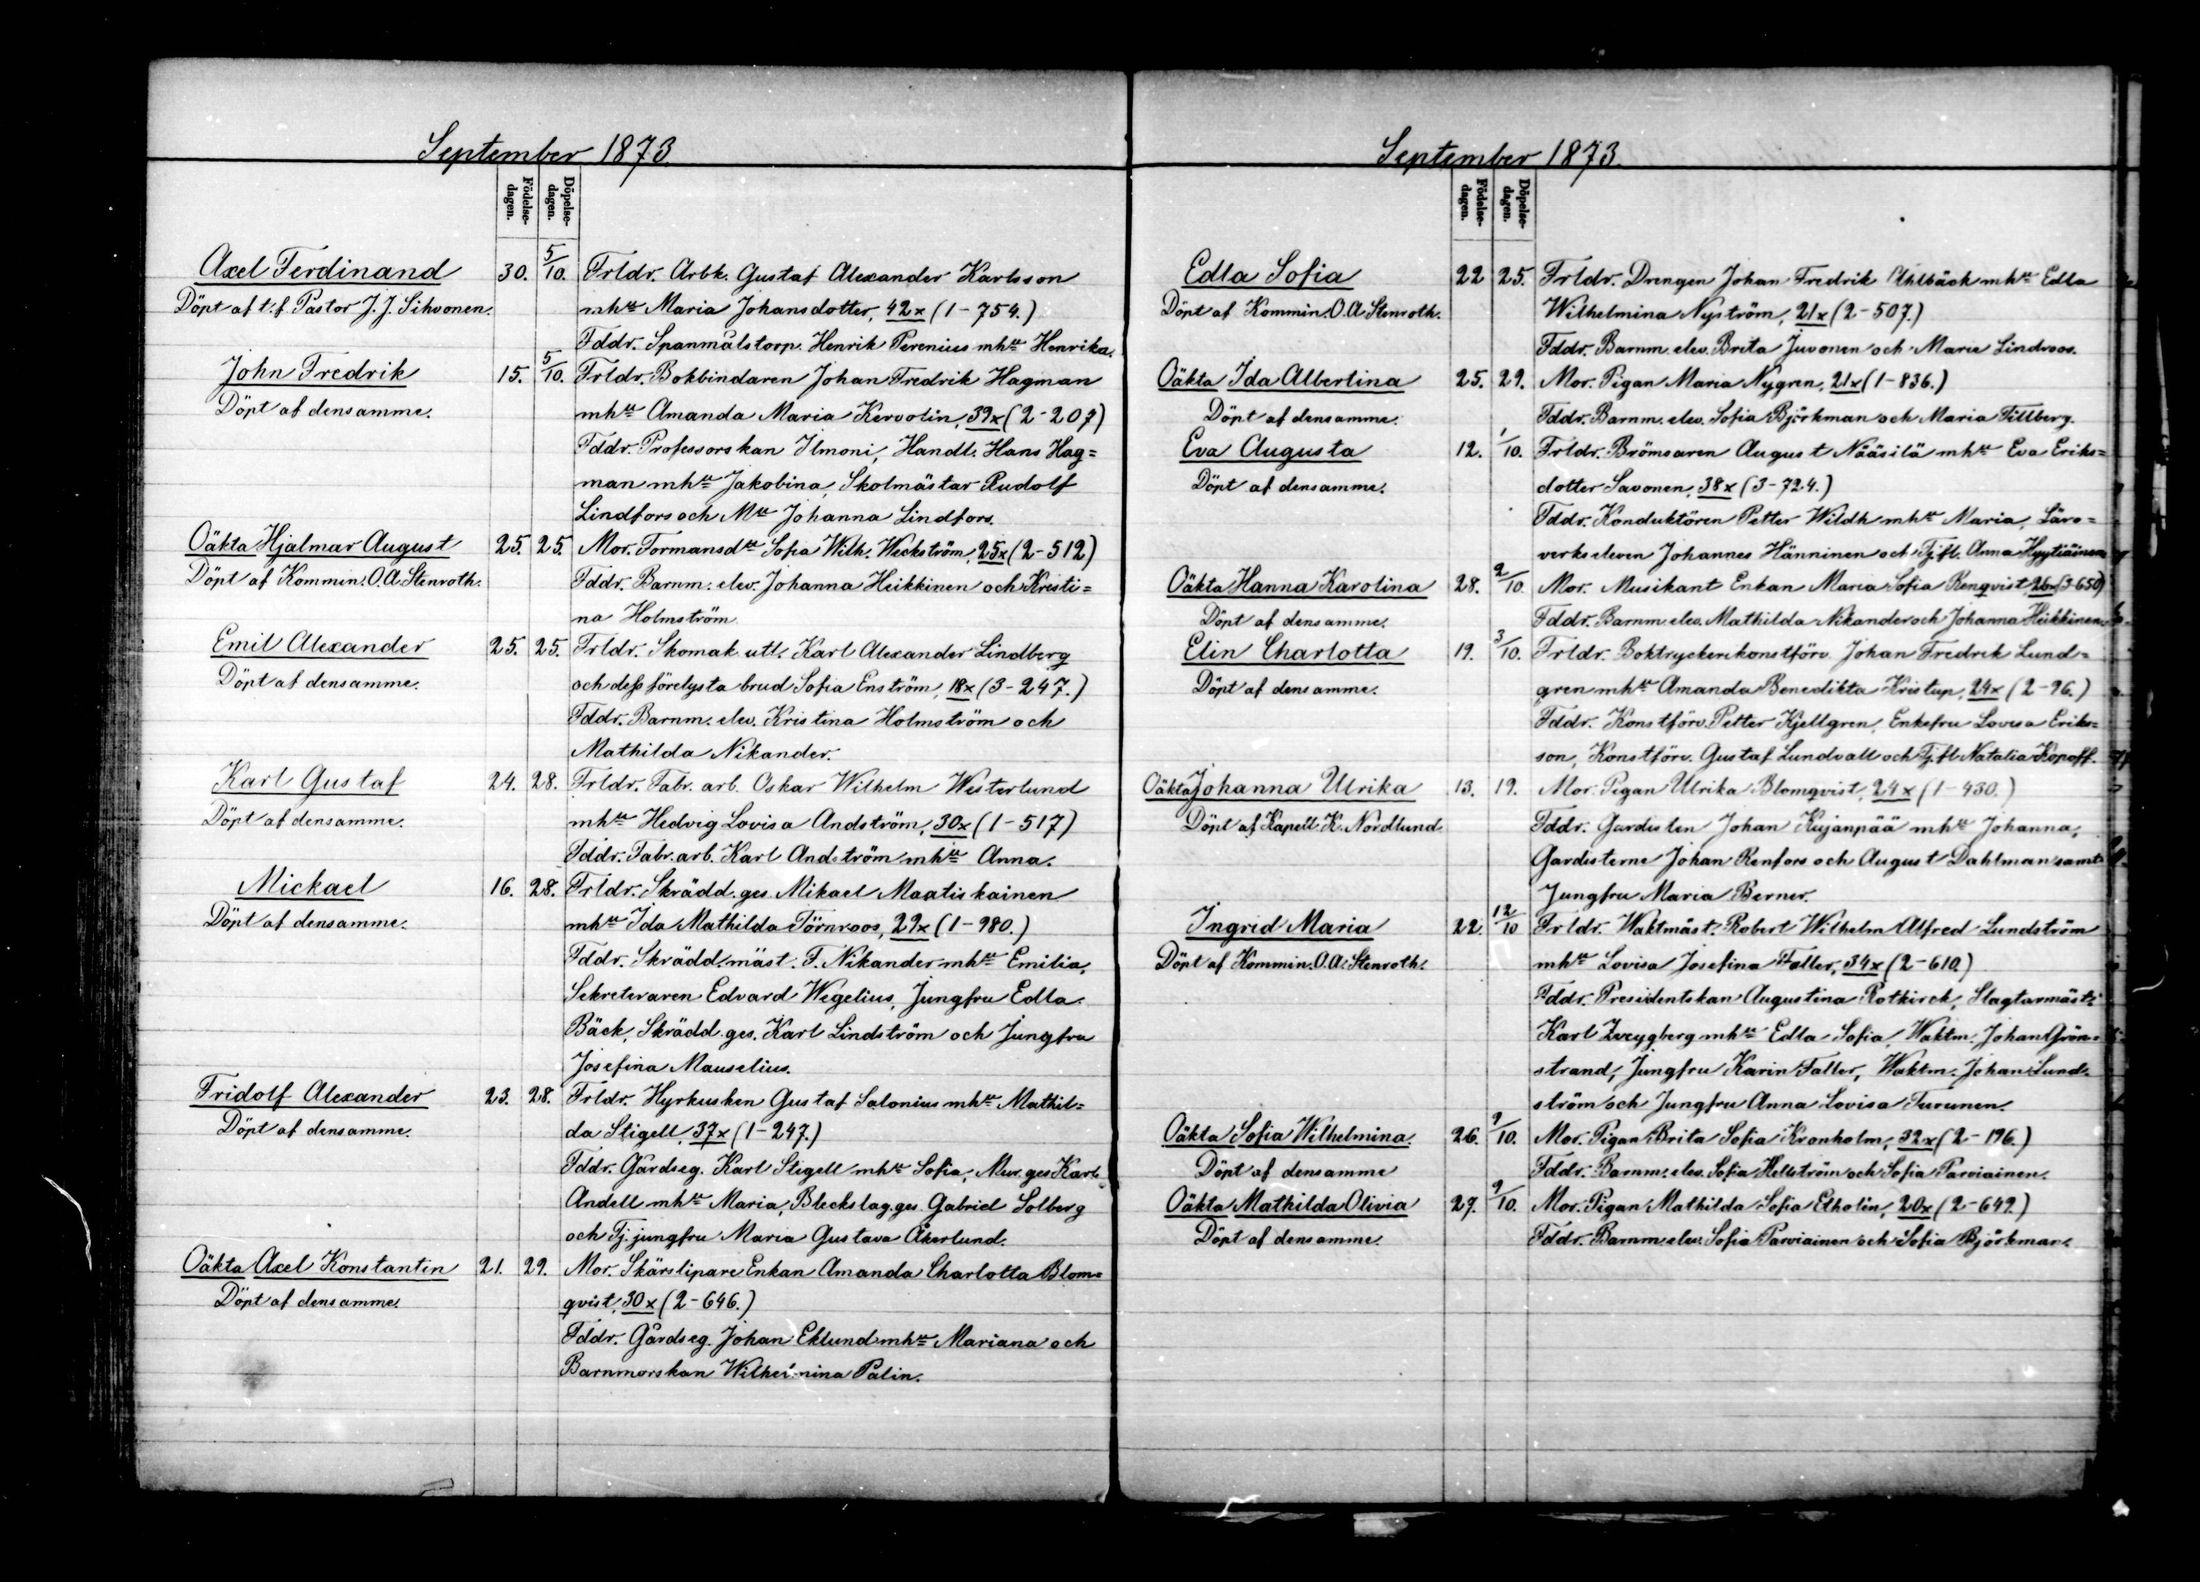 September 1873
Födelse-
dagen.
Döpelse-
dagen.
Axel Ferdinand 30. 5/10. Frldr. Arbk. Gustaf Alexander Karlsson
Döpt af t.f. Pastor J. J. Sihvonen. mhu Maria Johansdotter, 42x (1-754.)
Fddr. Spanmålstorp. Henrik Perenius mhu Henrika.
John Fredrik 15. 5/10. Frldr. Bokbindaren Johan Fredrik Hagman
Döpt af densamme. mhu Amanda Maria Kervolin, 39x (2-207)
Fddr. Professorskan Ilmoni, Handl. Hans Hag=
man mhu Jakobina, Skolmästar Rudolf
Lindfors och Mll Johanna Lindfors.
Oäkta Hjalmar August 25. 25. Mor. Formansdr Sofia Wilh. Weckström, 25x (2-512)
Döpt af Kommin. O.A. Stenroth. Fddr. Barnm. elev. Johanna Heikkinen och Kristi=
na Holmström
Emil Alexander 25. 25. Frldr. Skomak. utl. Karl Alexander Lindberg
Döpt af densamme. och dess förelysta brud Sofia Enström, 18x (3-247.)
Fddr. Barnm. elev. Kristina Holmström och
Mathilda Nikander.
Karl Gustaf 24. 28. Frldr. Fabr. arb. Oskar Wilhelm Westerlund
Döpt af densamme. mhu Hedvig Lovisa Andström, 30x (1-517)
Fddr. Fabr. arb. Karl Andström mhu Anna.
Mickael 16. 28. Frldr. Skrädd. ges. Mikael Maatiskainen
Döpt af densamme. mhu Ida Mathilda Törnroos, 29x (1-980.)
Fddr. Skrädd. mäst. F. Nikander mhu Emilia,
Sekreteraren Edvard Wegelius, Jungfru Edla
Bäck, Skrädd. ges. Karl Lindström och Jungfru
Josefina Mauselius.
Fridolf Alexander 23. 28. Frldr. Hyrkusken Gustaf Salonius mhu Mathil=
Döpt af densamme. da Stigell, 37x (1-247.)
Fddr. Gårdseg. Karl Stigell mhu Sofia, Mur. ges Karl
Andell mhu Maria, Bleckslag. ges. Gabriel Solberg
och Tj. jungfru Maria Gustava Åkerlund.
Oäkta Axel Konstantin 21. 29. Mor. Skärslipare Enkan Amanda Charlotta Blom=
Döpt af densamme. qvist, 30x (2-646.)
Fddr. Gårdseg. Johan Eklund mhu Mariana och
Barnmorskan Wilhelmina Palin.
September 1873.
Födelse-
dagen.
Döpelse-
dagen.
Edla Sofia 22 25. Frldr. Drengen Johan Fredrik Ahlbäck mhu Edla
Döpt af Kommin. O.A. Stenroth. Wilhelmina Nyström, 21x (2-507.)
Fddr. Barnm. elev. Brita Juvonen och Maria Lindroos.
Oäkta Ida Albertina 25. 29. Mor. Pigan Maria Nygren, 21x (1-836.)
Döpt af densamme. Fddr. Barnm. elev. Sofia Björkman och Maria Tillberg.
Eva Augusta 12. 1/10. Frldr. Brömsaren August Nääsilä mhu Eva Eriks=
Döpt af densamme. dotter Savonen, 38x (3-724.)
Fddr. Konduktören Petter Wildh mhu Maria, Läro=
verks eleven Johannes Hänninen och Tj. fl. Anna Hyytiäinen
Oäkta Hanna Karolina 28. 2/10. Mor. Musikant Enkan Maria Sofia Renqvist, 26x (3-650)
Döpt af densamme. Fddr. Barnm. elev. Mathilda Nikander och Johanna Heikkinen.
Elin Charlotta 19. 3/10. Frldr. Boktryckerikonstförv. Johan Fredrik Lund=
Döpt af densamme. gren mhu Amanda Benedikta Kristup, 24x (2-96.)
Fddr. Konstförv. Petter Kjellgren, Enkefru Lovisa Eriks=
son, Konstförv. Gustaf Lundvall och Tj. fl. Natalia Kopoff.
Oäkta Johanna Ulrika 13. 19. Mor. Pigan Ulrika Blomqvist, 24x (1-430.)
Döpt af Kapell. K. Nordlund Fddr. Gardisten Johan Kujanpää mhu Johanna,
Gardisterne Johan Renfors och August Dahlman samt
Jungfru Maria Berner.
Ingrid Maria 22. 12/10 Frldr. Waktmäst. Robert Wilhelm Alfred Lundström
Döpt af Kommin. O.A. Stenroth. mhu Lovisa Josefina Faller, 34x (2-610.)
Fddr. Presidentskan Augustina Rotkirck, Slagtarmäst.
Karl Zweygberg mhu Edla Sofia, Waktm. Johan Grön=
strand, Jungfru Karin Faller, Waktm. Johan Lund=
ström och Jungfru Anna Lovisa Turunen.
Oäkta Sofia Wilhelmina. 26. 9/10. Mor. Pigan Brita Sofia Kronholm, 32x (2-196.)
Döpt af densamme Fddr. Barnm. elev. Sofia Hellström och Sofia Parviainen.
Oäkta Mathilda Olivia 27. 9/10. Mor. Pigan Mathilda Sofia Etholin, 20x (2-649.)
Döpt af densamme. Fddr. Barnm. elev. Sofia Parviainen och Sofia Björkman.